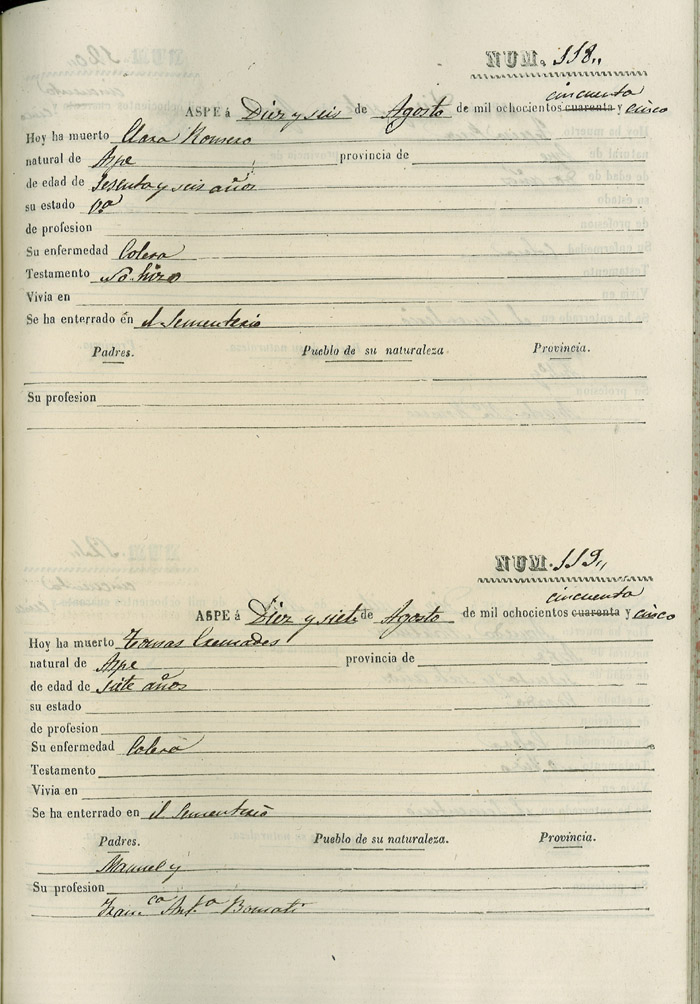 NUM. 118„
cincuenta
ASPE á Diez y seis de Agosto de mil ochocientos cuarenta y cinco
Hoy ha muerto Clara Romero
natural de Aspe provincia de
de edad de Sesenta y seis años
su estado Vª
de profesion
Su enfermedad Colera
Testamento No hizo
Vivía en
Se ha enterrado en el Sementerio
Padres. Pueblo de su naturaleza Provincia.
Su profesion
NUM. 119„
cincuenta
ASPE á Diez y siete de Agosto de mil ochocientos cuarenta y cinco
Hoy ha muerto Tomas Cremades
natural de Aspe provincia de
de edad de siete años
su estado
de profesion
Su enfermedad Colera
Testamento
Vivia en
Se ha enterrado en el Sementerio
Padres. Pueblo de su naturaleza. Provincia.
Manuel y
Su profesion
Fran.ca Ant.a